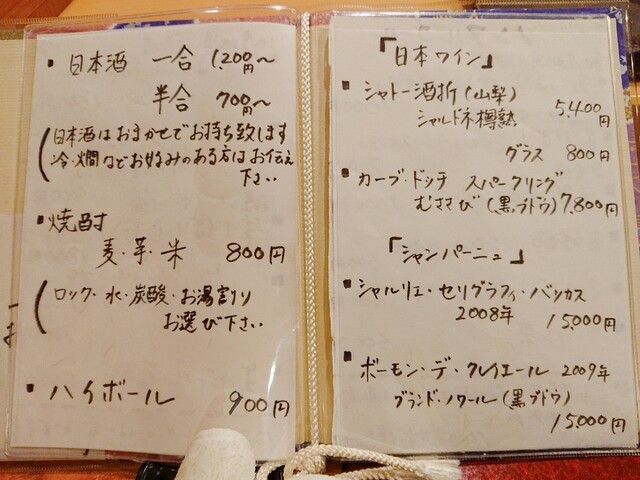 ・日本酒 一合 1,200円〜
半合 700円〜
(日本酒はおまかせでお持ち致します
冷・燗などお好みのある方はお伝え
下さい
・焼酎
麦・芋・米 800円
(ロック・水・炭酸・お湯割り
お選び下さい
・ハイボール 900円
「日本ワイン」
・シャトー酒折(山梨)
シャルドネ樽熟 5,400円
グラス 800円
・カーブ・ドッチ スパークリング
むささび(黒ブドウ) 7,800円
「シャンパーニュ」
・シャルリエ・セリグラフィ・バッカス
2008年 15,000円
・ボーモン・デ・クレイエール 2009年
ブランド・ノワール(黒ブドウ)
15,000円